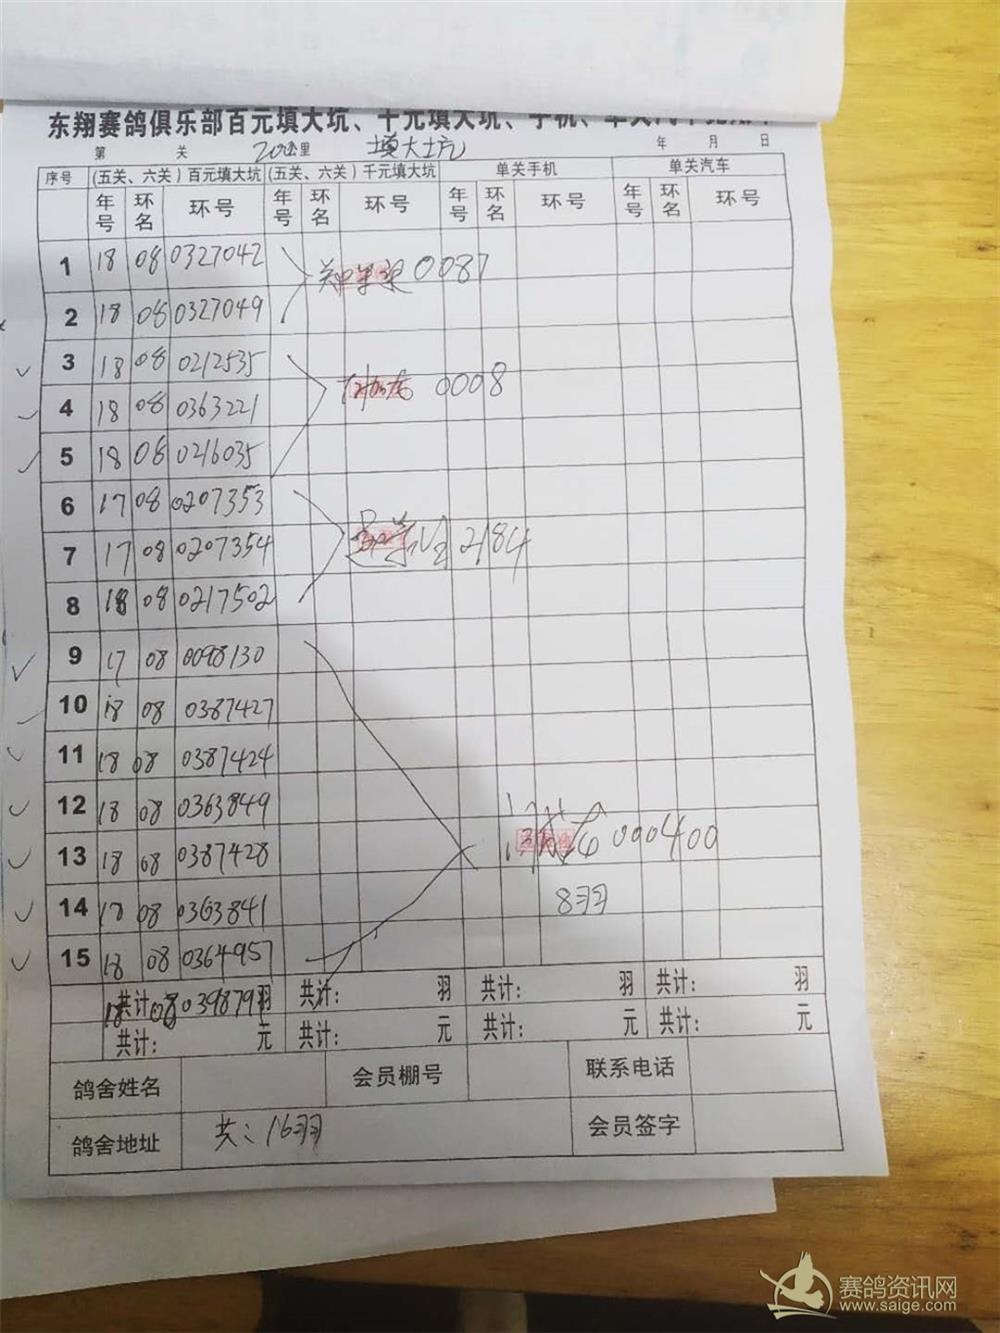 东翔赛鸽俱乐部百元填大坑、千元填大坑、手机、单关汽车
第 关 200公里 填大坑 年 月 日
序号 (五关、六关)百元填大坑 (五关、六关)千元填大坑 单关手机 单关汽车
年号 环名 环号 年号 环名 环号 年号 环名 环号 年号 环名 环号
1 18 08 0327042
0087
2 18 08 0327049
3 18 08 0212535
0008
4 18 08 0363221
5 18 08 0216035
6 17 08 0207353
7 17 08 0207354
2184
8 18 08 0217502
9 17 08 0098130
10 18 08 0387427
11 18 08 0387424
12 18 08 0363849
13 18 08 0387428
000400
14 18 08 0363841
8羽
15 18 08 0364957
共计: 羽 共计: 羽 共计: 羽 共计: 羽
18 08 039879
共计: 元 共计: 元 共计: 元 共计: 元
鸽舍姓名 会员棚号 联系电话
鸽舍地址 共：16羽 会员签字
赛鸽资讯网
www.saige.com